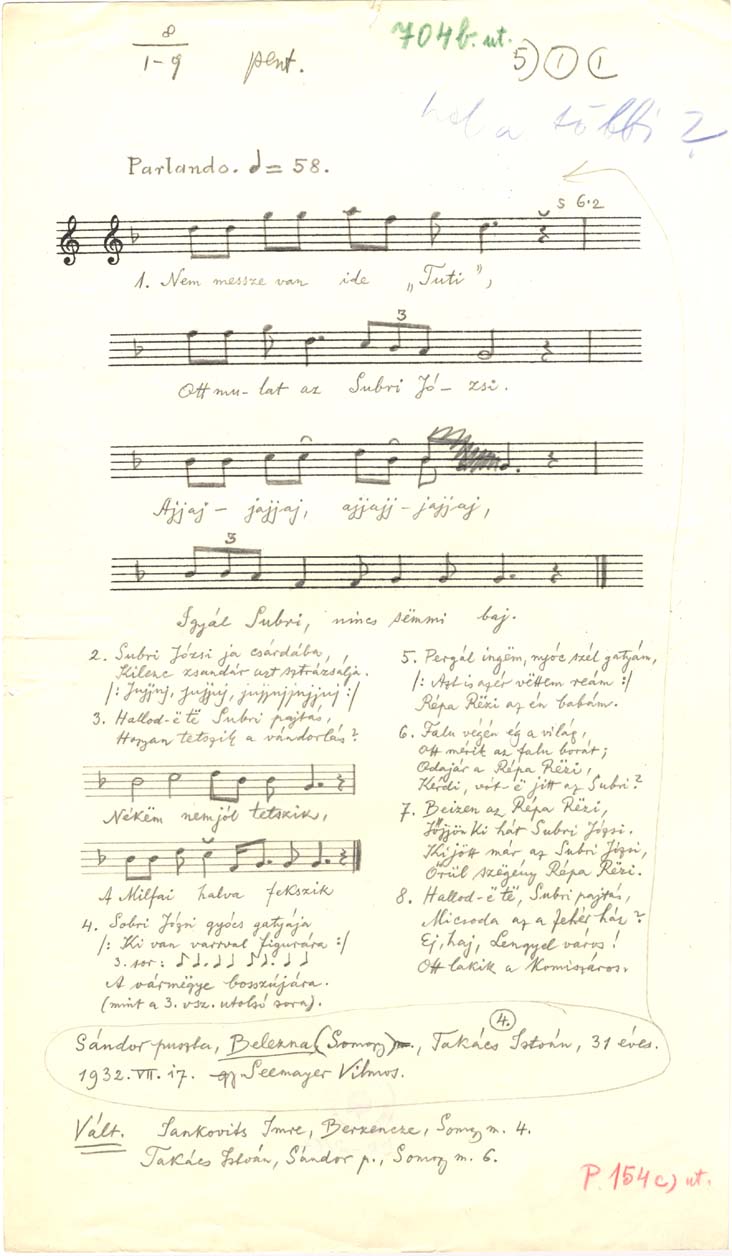 8
1-9 pent.
704b. ut.
5) 1 1
hol a többi?
Parlando. = 58.
S 6·2
1. Nem messze van ide „Tuti”,
3
Ott mu- lat az Subri Jó- zsi.
Ajjaj- jajjaj, ajjajj- jajjaj,
3
Igyál Subri, nincs sëmmi baj.
2. Subri Józsi ja csárdába,
Kilenc zsandár azt sztrázsálja.
/: Jujjuj, jujjuj, jujjujjujjuj :/
3. Hallod-ë të Subri pajtás,
Hogyan tetszik a vándorlás?
Nékëm nem jól tetszik,
A Milfai halva fekszik
4. Sobri Józsi gyócs gatyája
/: Ki van varrval figurára :/
3. sor:
A vármëgye bosszújára.
(mint a 3. vsz. utolsó sora).
5. Pergál ingëm, nyóc szél gatyám,
/: Azt is azér vëttem reám :/
Répa Rëzi az én babám.
6. Falu végén ég a világ,
Ott mérik az falu borát;
Odajár a Répa Rëzi,
Kérdi, vót-ë jitt az Subri?
7. Beizen az Répa Rëzi,
Jőjjön ki hát Subri Józsi.
Kijött már az Subri Józsi,
Örül szëgény Répa Rëzi.
8. Hallod-ë të, Subri pajtás,
Micsoda az a fehér ház?
Ej, haj, Lengyel város!
Ott lakik a Komiszáros.
Sándor puszta, Belezna (Somogy) m., Takács István, 31 éves.
4.
1932. VII. 17. Seemayer Vilmos.
Vált. Jankovits Imre, Berzencze, Somogy m. 4.
Takács István, Sándor p., Somogy m. 6.
P. 154c) ut.